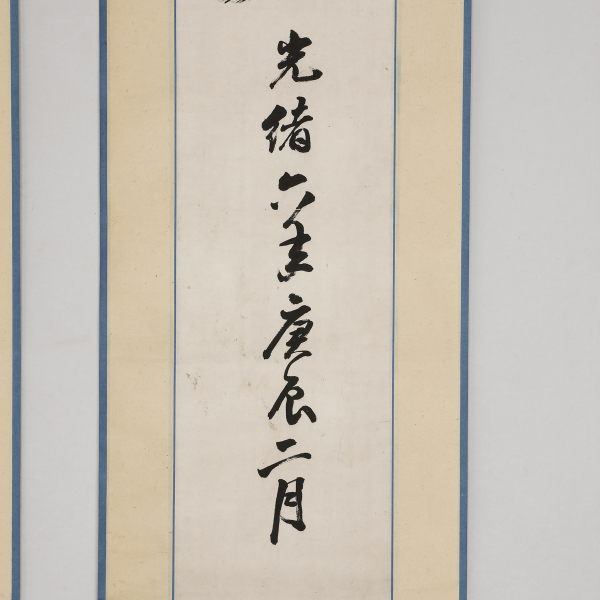 光緒六年庚辰二月